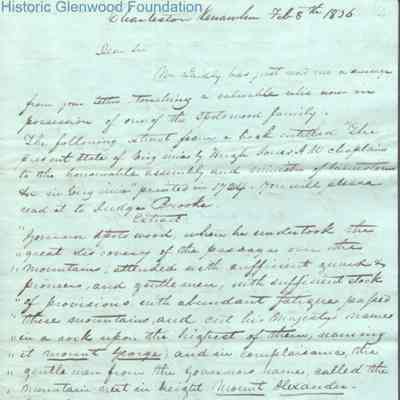 Historic Glenwood Foundation
Charleston Kanawha Feb 8th 1856
Dear Sir
Mr has just read me a
from your letter touching a valuable relic now in
possession of one of the Spotswood family.
The following extract from a book entitled "The
present State of Virginia by Hugh Jones A M chaplain
to the honourable assembly and minister of Jamestown
&c in Virginia" printed in 1724. You will please
read it to Judge Brooke
Extract
"Governor Spotswood, when he undertook the
"great discovery of the passage over the
"mountains, attended with sufficient guard &
"pioneers, and gentlemen, with sufficient stock
"of provisions with abundant fatigue passed
"these mountains, and cut his Majestys name
"in a rock upon the highest of them, naming
"it Mount George; and in complaisance, the
"gentlemen from the Governors name, called the
"mountain next in height Mount Alexander.